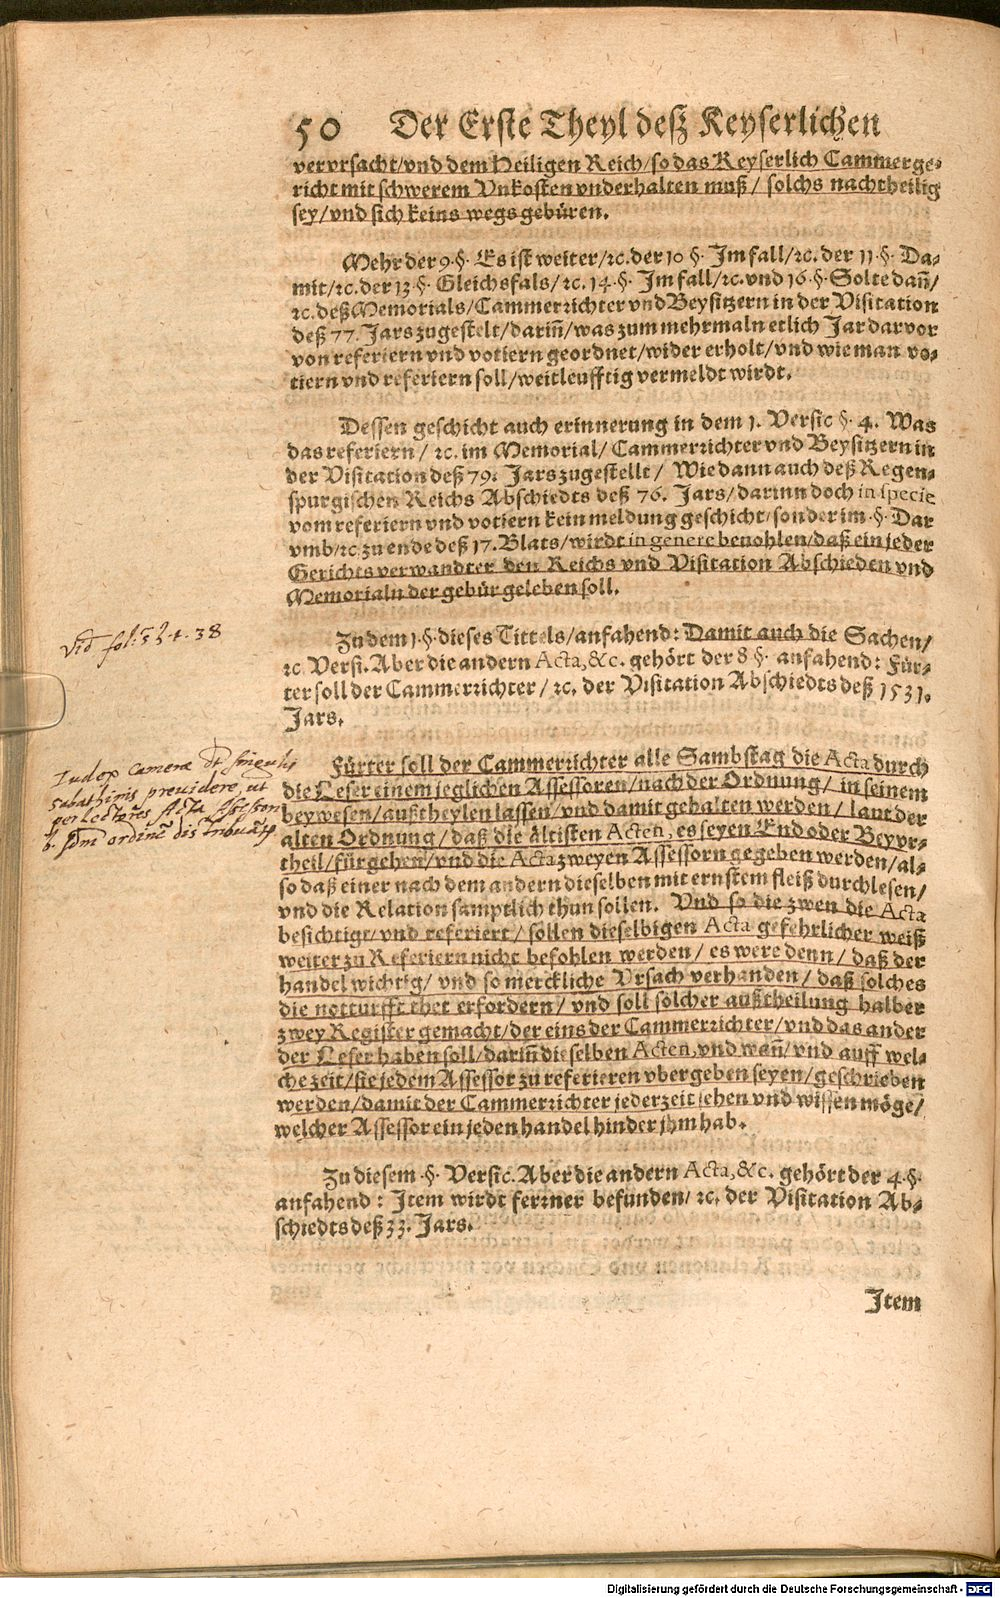 50 Der Erste Theyl deß Keyserlichen
verursacht/vnd dem Heiligen Reich/so das Keyserlich Cammerge-
richt mit schwerem Vnkosten vnderhalten muß/ solchs nachtheilig
sey/vnd sich keins wegs gebüren.
Mehr der 9.§. Es ist weiter/ꝛc. der 10 §. Im fall/ꝛc. der 11.§. Da-
mit/ꝛc. der 13.§. Gleichsfals/ꝛc. 14.§. Im fall/ꝛc. vnd 16.§. Solte dañ/
ꝛc. deß Memorials/Cammerrichter vnd Beysitzern in der Visitation
deß 77. Jars zugestelt/dariñ/was zum mehrmaln etlich Jar darvor
von referiern vnd votiern geordnet/wider erholt/vnd wie man vo-
tiern vnd referiern soll/weitleufftig vermeldt wirdt.
Dessen geschicht auch erinnerung in dem 1. Versic §. 4. Was
das referiern/ ꝛc. im Memorial/ Cammerrichter vnd Beysitzern in
der Visitation deß 79. Jars zugestellt/ Wie dann auch deß Regen-
spurgischen Reichs Abschiedts deß 76. Jars/darinn doch in specie
vom referiern vnd votiern kein meldung geschicht/sonder im .§. Dar
vmb/ꝛc. zu ende deß 17. Blats/wirdt in genere beuohlen/daß ein jeder
Gerichtsverwandter den Reichs vnd Visitation Abschieden vnd
Memorialn der gebür geleben soll.
Vid fol: 32. t. 38
Zu dem 1.§. dieses Tittels/anfahend: Damit auch die Sachen/
ꝛc. Versi. Aber die andern Acta, &c. gehört der 8 §. anfahend: Für-
ter soll der Cammerrichter/ ꝛc. der Visitation Abschiedts deß 1531.
Jars.
Iudex cameræ dt singulis
sabathinis prouidere, ut
per Lectores Acta Assessori-
b. scdm ordinē distribuātr.
Fürter soll der Cammerrichter alle Sambstag die Acta durch
die Leser einem jeglichen Assessoren/nach der Ordnung/ in seinem
beywesen/außtheylen lassen/vnd damit gehalten werden/ laut der
alten Ordnung/daß die ältisten Acten, es seyen End oder Beyvr-
theil/fürgehen/vnd die Acta zweyen Assessorn gegeben werden/al-
so daß einer nach dem andern dieselben mit ernstem fleiß durchlesen/
vnd die Relation samptlich thun sollen. Vnd so die zwen die Acta
besichtigt/vnd referiert/ sollen dieselbigen Acta gefehrlicher weiß
weiter zu Referiern nicht befohlen werden/ es were denn/ daß der
handel wichtig/ vnd so merckliche Vrsach verhanden/ daß solches
die notturfft thet erfordern/ vnd soll solcher außtheilung halber
zwey Register gemacht/der eins der Cammerrichter/vnd das ander
der Leser haben soll/dariñ dieselben Acten, vnd wañ/ vnd auff wel-
che zeit/sie jedem Assessor zu referieren vbergeben seyen/geschrieben
werden/damit der Cammerrichter jederzeit sehen vnd wissen möge/
welcher Assessor ein jeden handel hinder jhm hab.
Zu diesem .§. Versic. Aber die andern Acta, &c. gehört der 4.§.
anfahend: Item wirdt ferrner befunden/ ꝛc. der Visitation Ab-
schiedts deß 33. Jars.
Item
Digitalisierung gefördert durch die Deutsche Forschungsgemeinschaft - DFG